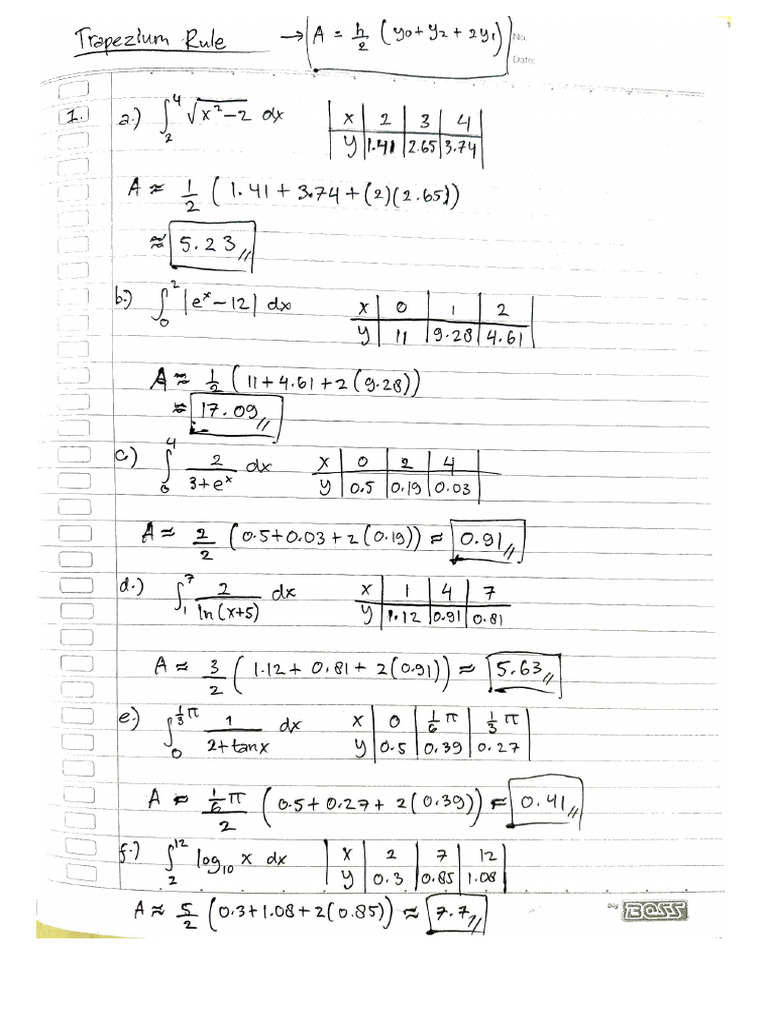 Trapezium Rule → A = h/2 (y0 + y2 + 2y1)
No.
Date:
1. a.) ∫₂⁴ √(x²−2) dx | x | 2 | 3 | 4
y | 1.41 | 2.65 | 3.74
A ≈ 1/2 (1.41 + 3.74 + (2)(2.65))
≈ 5.23 //
b.) ∫₀² |eˣ − 12| dx x | 0 | 1 | 2
y | 11 | 9.28 | 4.61
A ≈ 1/2 (11 + 4.61 + 2(9.28))
≈ 17.09 //
c.) ∫₀⁴ 2/(3+eˣ) dx x | 0 | 2 | 4
y | 0.5 | 0.19 | 0.03
A ≈ 2/2 (0.5 + 0.03 + 2(0.19)) ≈ 0.91 //
d.) ∫₁⁷ 2/ln(x+5) dx x | 1 | 4 | 7
y | 1.12 | 0.91 | 0.81
A ≈ 3/2 (1.12 + 0.81 + 2(0.91)) ≈ 5.63 //
e.) ∫₀^(1/3 π) 1/(2+tanx) dx x | 0 | 1/6 π | 1/3 π
y | 0.5 | 0.39 | 0.27
A ≈ (1/6 π)/2 (0.5 + 0.27 + 2(0.39)) ≈ 0.41 //
f.) ∫₂¹² log₁₀ x dx | x | 2 | 7 | 12
y | 0.3 | 0.85 | 1.08
A ≈ 5/2 (0.3 + 1.08 + 2(0.85)) ≈ 7.7 //
Big BOSS